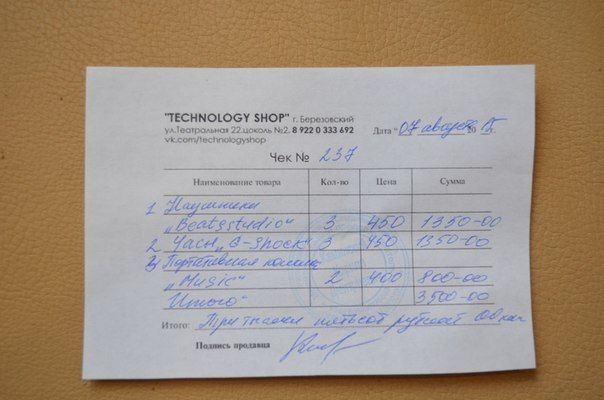 "TECHNOLOGY SHOP" г. Березовский
ул.Театральная 22.цоколь №2. 8 922 0 333 692
vk.com/technologyshop
Дата "07 августа 2015г.
Чек № 237
Наименование товара Кол-во Цена Сумма
1 Наушники
„Beatsstudio" 3 450 1350-00
2. Часы „G-Shock" 3 450 1350-00
3) Портативная колонка
„Music" 2 400 800-00
Итого" 3500-00
Итого: „Три тысячи пятьсот рублей 00 коп
Подпись продавца